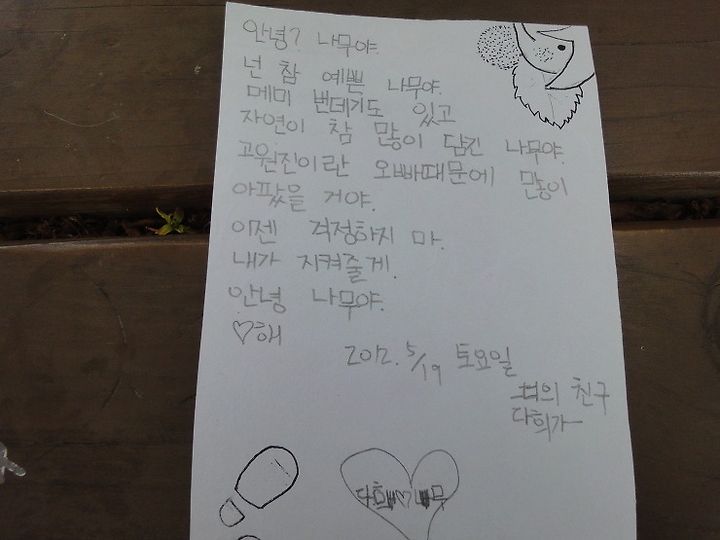 안녕? 나무야.
넌 참 예쁜 나무야.
메미 번데기도 있고
자연이 참 많이 담긴 나무야.
고원진이란 오빠때문에 많이
아팠을 거야.
이젠 걱정하지 마.
내가 지켜줄게.
안녕 나무야.
♡해
2012. 5/19 토요일
너의 친구
다희가
다희 ♡ 나무